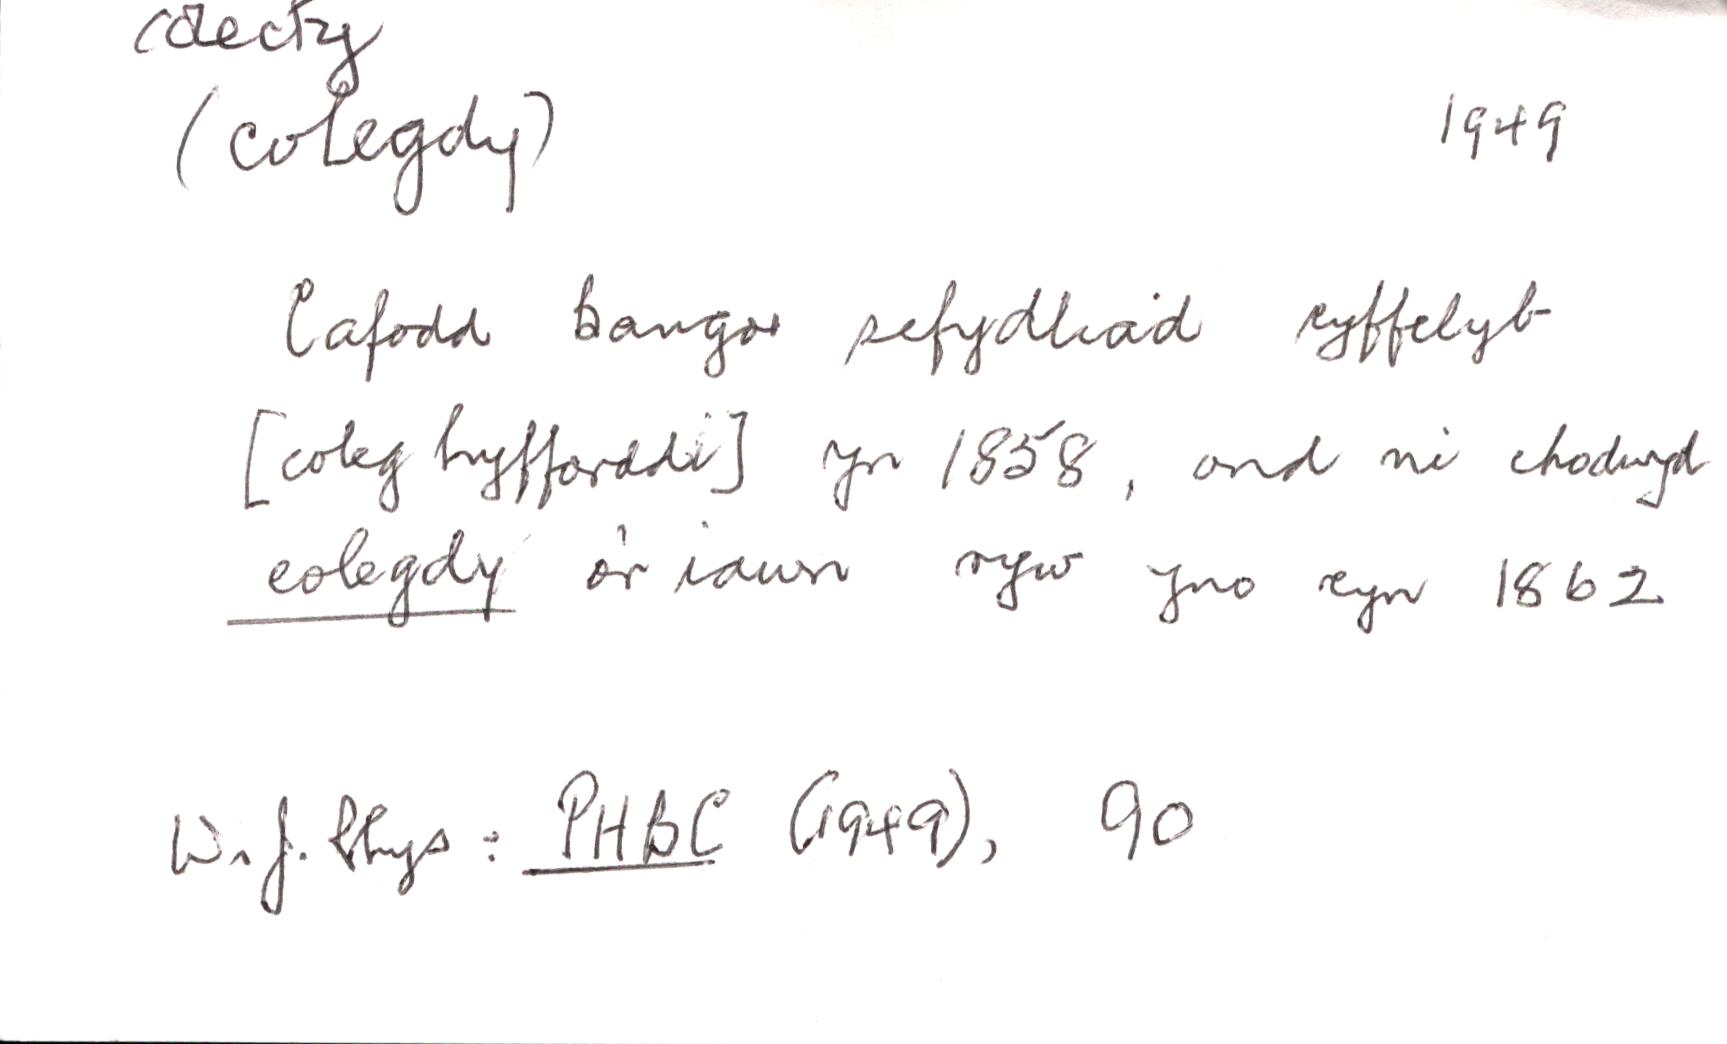 colecty
(colegdy) 1949
Cafodd Bangor sefydliad cyffelyb
[coleg hyfforddi] yn 1858, ond ni chodwyd
colegdy o'r iawn ryw yno cyn 1862
W. J. Rhys : PHBC (1949), 90